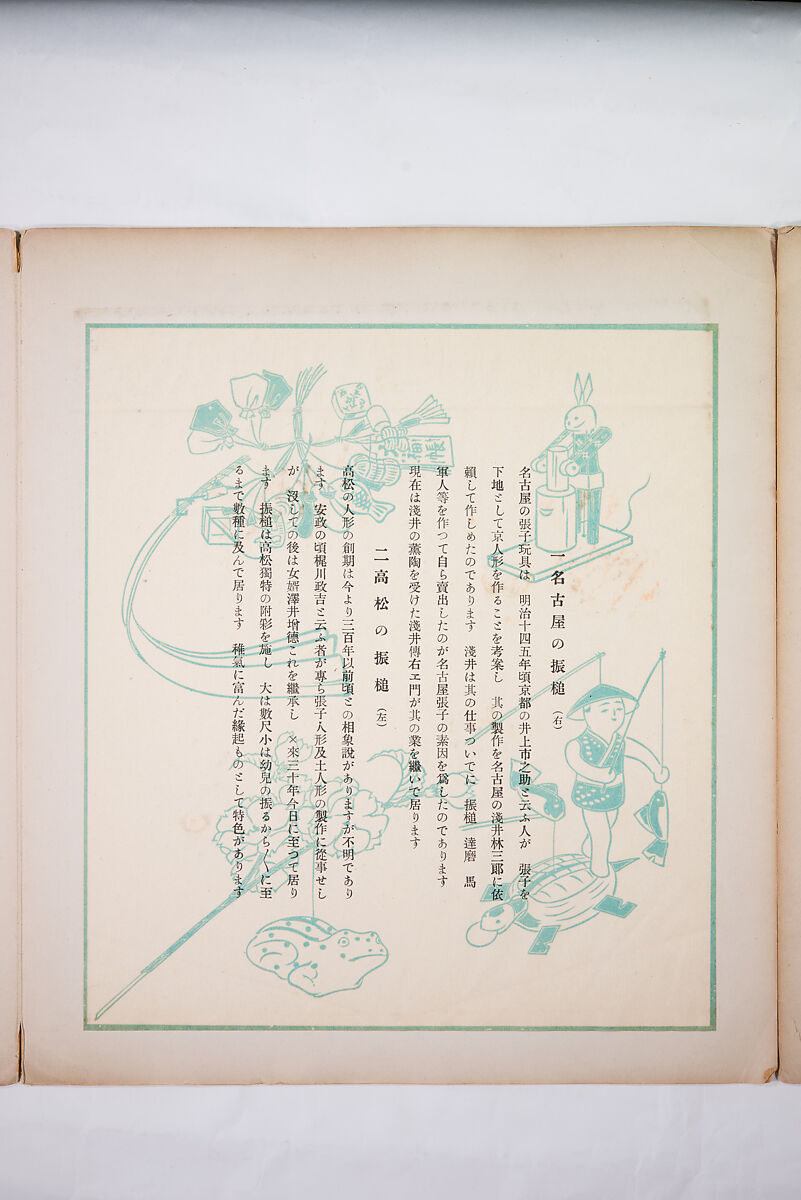 一名古屋の振槌（右）
名古屋の張子玩具は　明治十四五年頃京都の井上市之助と云ふ人が　張子を
下地として京人形を作ることを考案し　其の製作を名古屋の淺井林三郎に依
賴して作しめたのであります　淺井は其の仕事ついでに　振槌　達磨　馬
軍人等を作つて自ら賣出したのが名古屋張子の素因を爲したのであります
現在は淺井の薰陶を受けた淺井傳右ヱ門が其の業を繼いで居ります
二高松の振槌（左）
高松の人形の創期は今より三百年以前頃との相象說がありますが不明であり
ます　安政の頃梶川政吉と云ふ者が專ら張子人形及土人形の製作に從事せし
が　沒しての後は女婿澤井增德これを繼承し　×來三十年今日に至つて居り
ます　振槌は高松獨特の附彩を施し　大は數尺小は幼兒の振るから〱に至
るまで數種に及んで居ります　稚氣に富んだ緣起ものとして特色があります